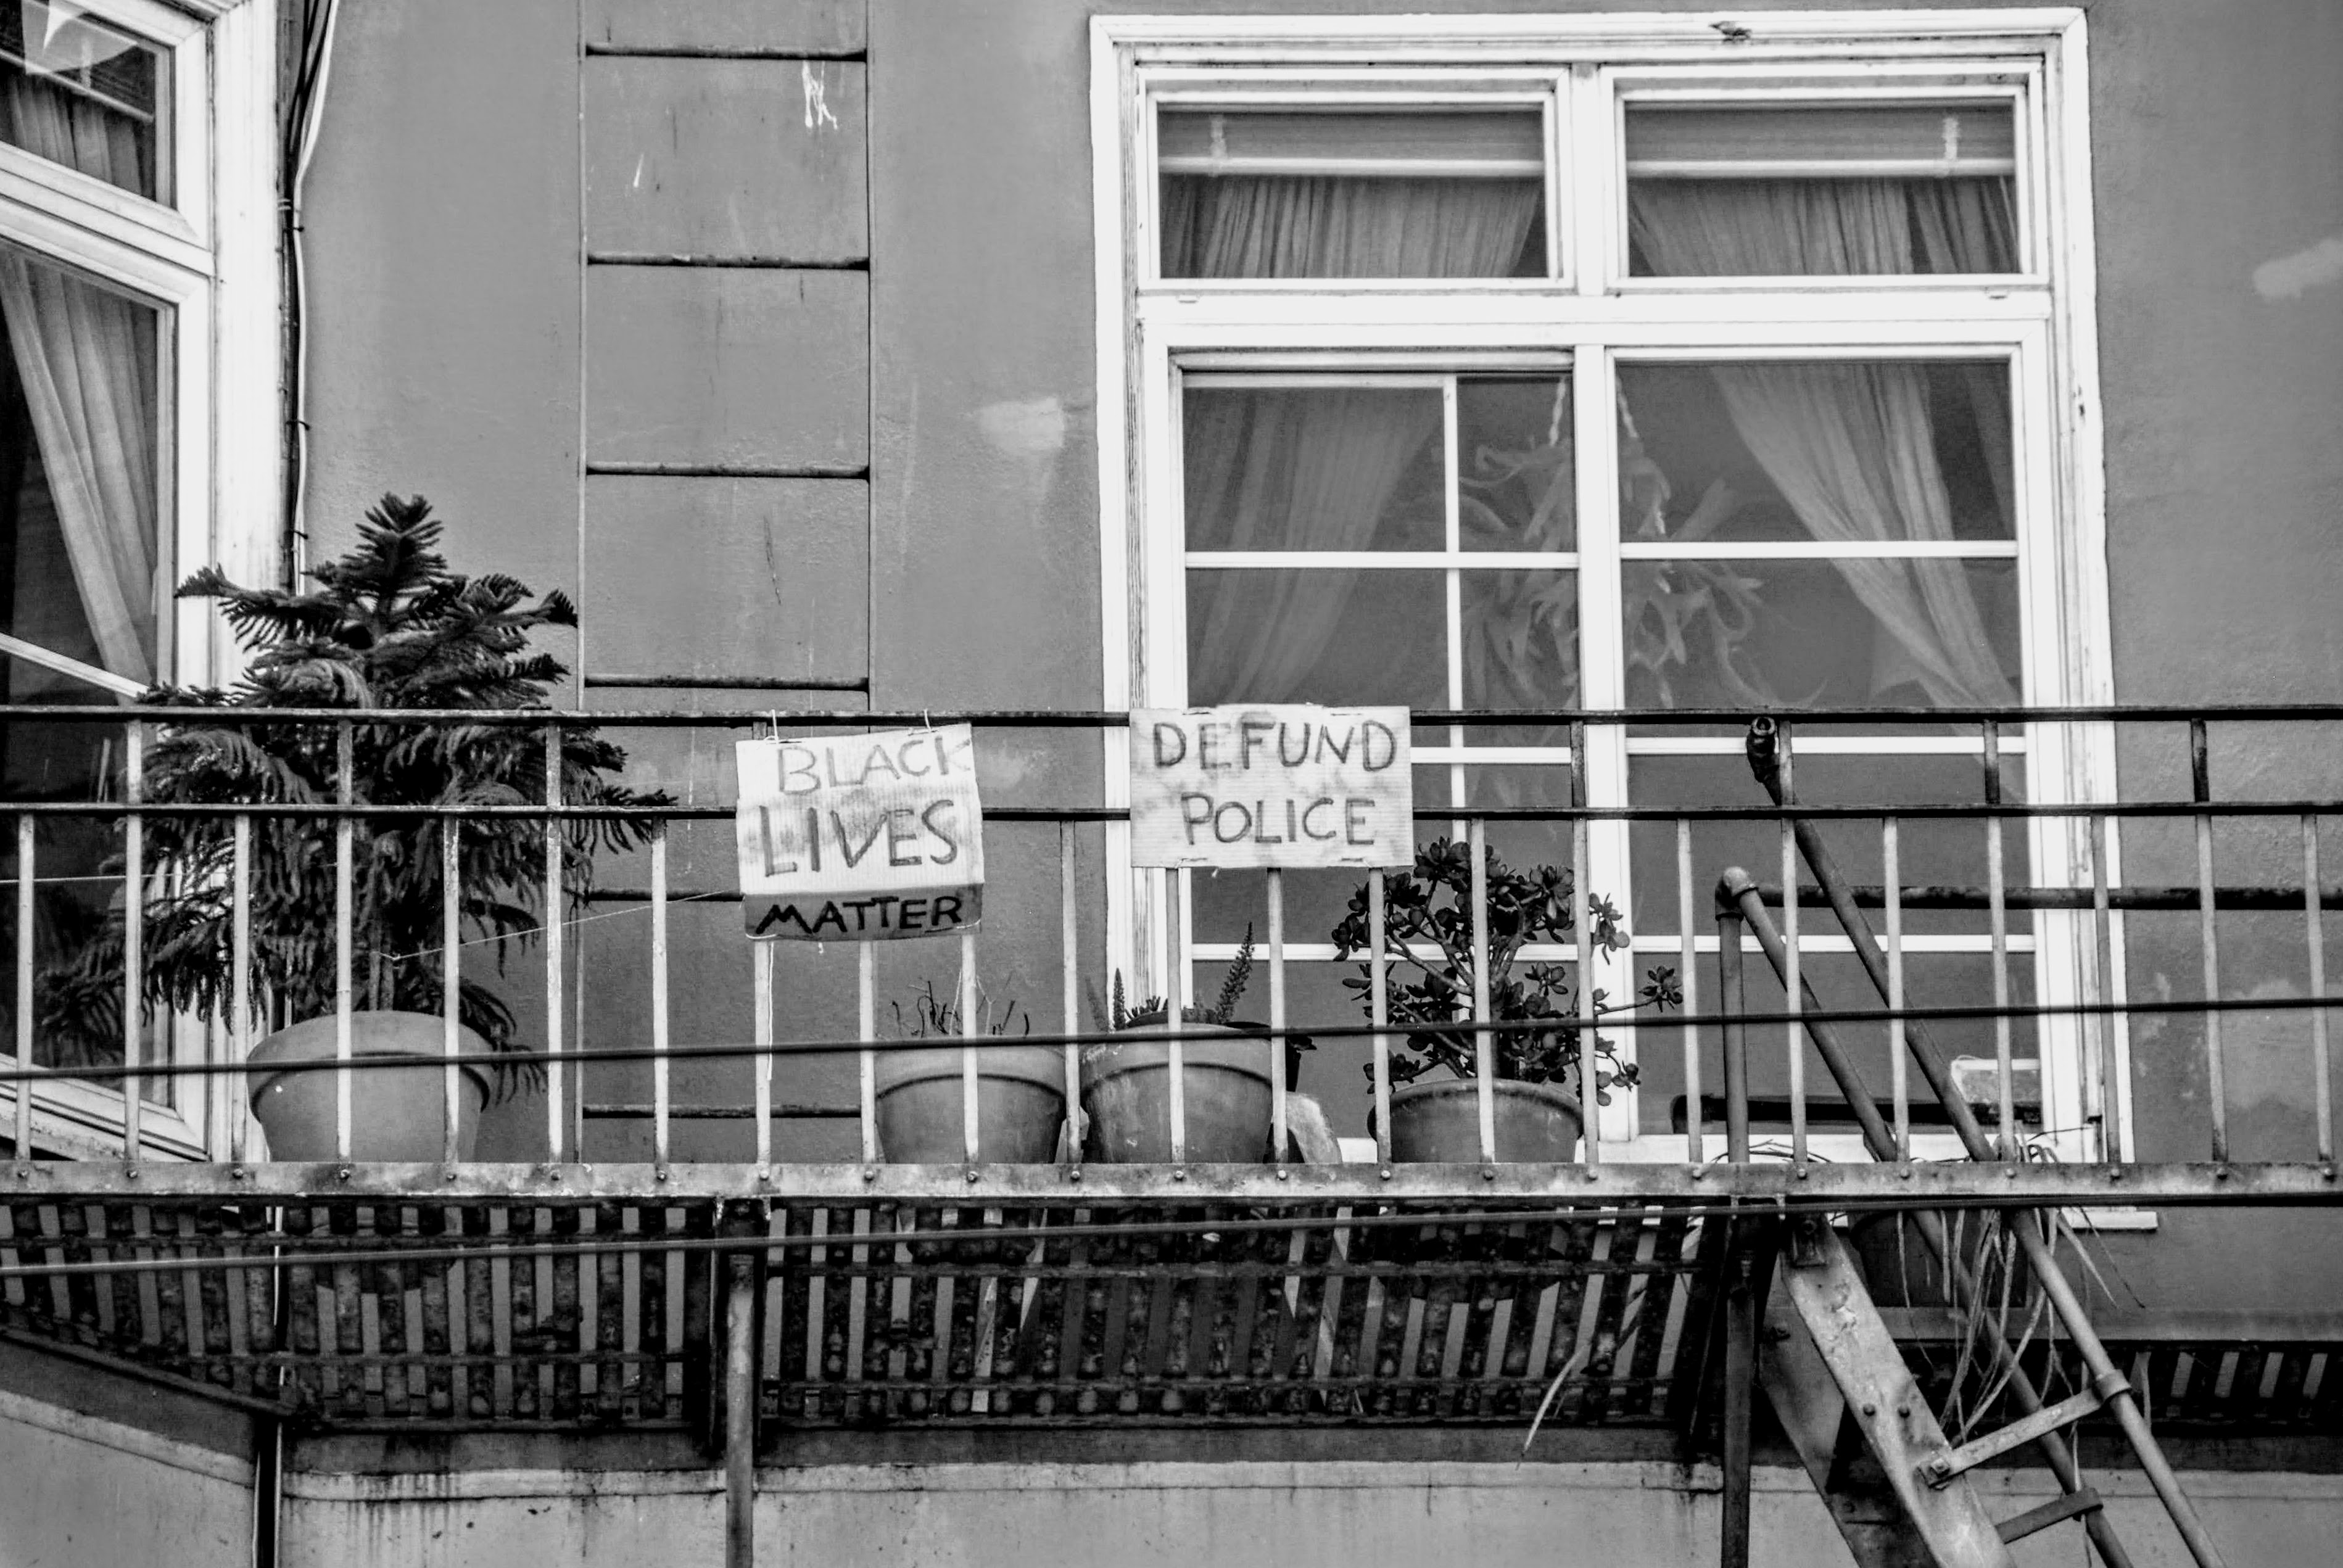 BLACK
LIVES
MATTER
DEFUND
POLICE